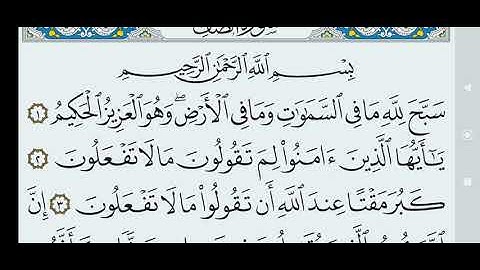 سُورَةُ الصَّفِّ
بِسْمِ ٱللَّهِ ٱلرَّحْمَٰنِ ٱلرَّحِيمِ
سَبَّحَ لِلَّهِ مَا فِي ٱلسَّمَٰوَٰتِ وَمَا فِي ٱلْأَرْضِۖ وَهُوَ ٱلْعَزِيزُ ٱلْحَكِيمُ ١
يَٰٓأَيُّهَا ٱلَّذِينَ ءَامَنُوا۟ لِمَ تَقُولُونَ مَا لَا تَفْعَلُونَ ٢
كَبُرَ مَقْتًا عِندَ ٱللَّهِ أَن تَقُولُوا۟ مَا لَا تَفْعَلُونَ ٣ إِنَّ